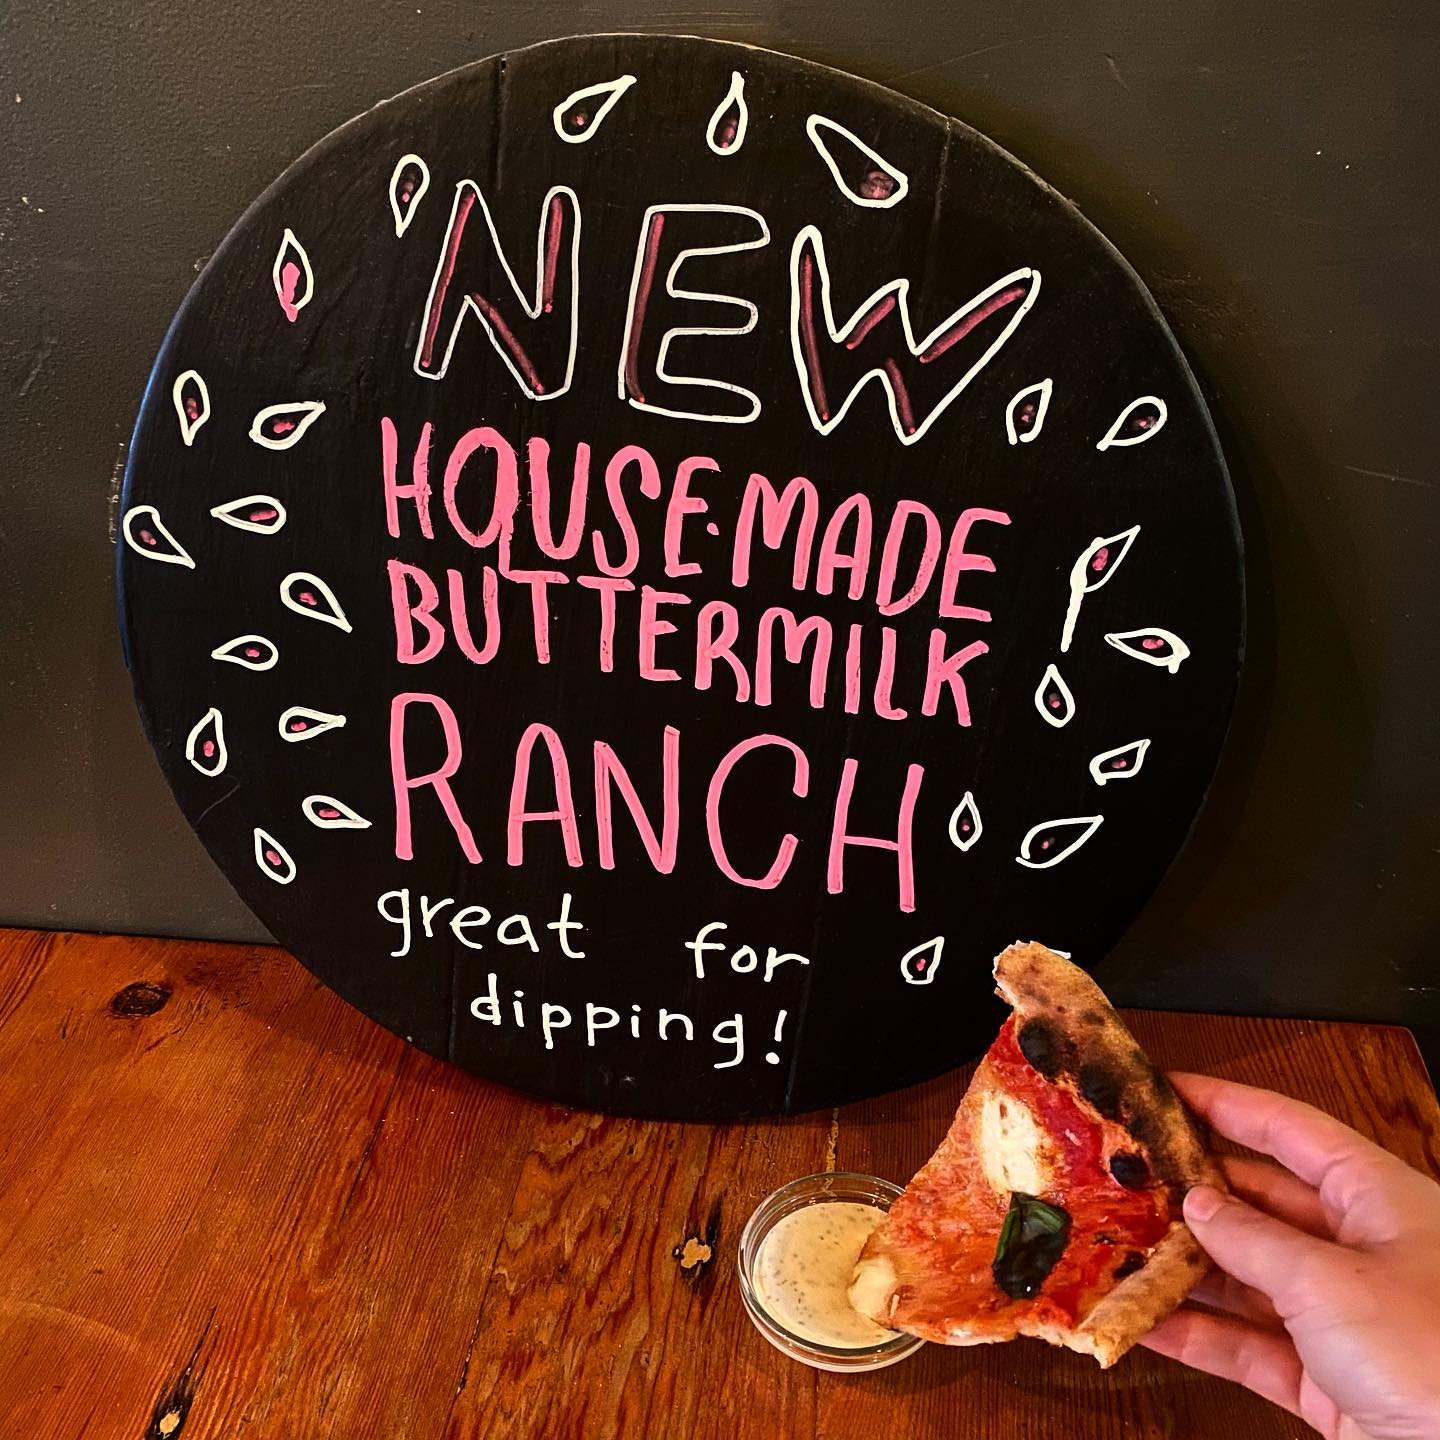 NEW
HOUSE-MADE
BUTTERMILK
RANCH
great for
dipping!